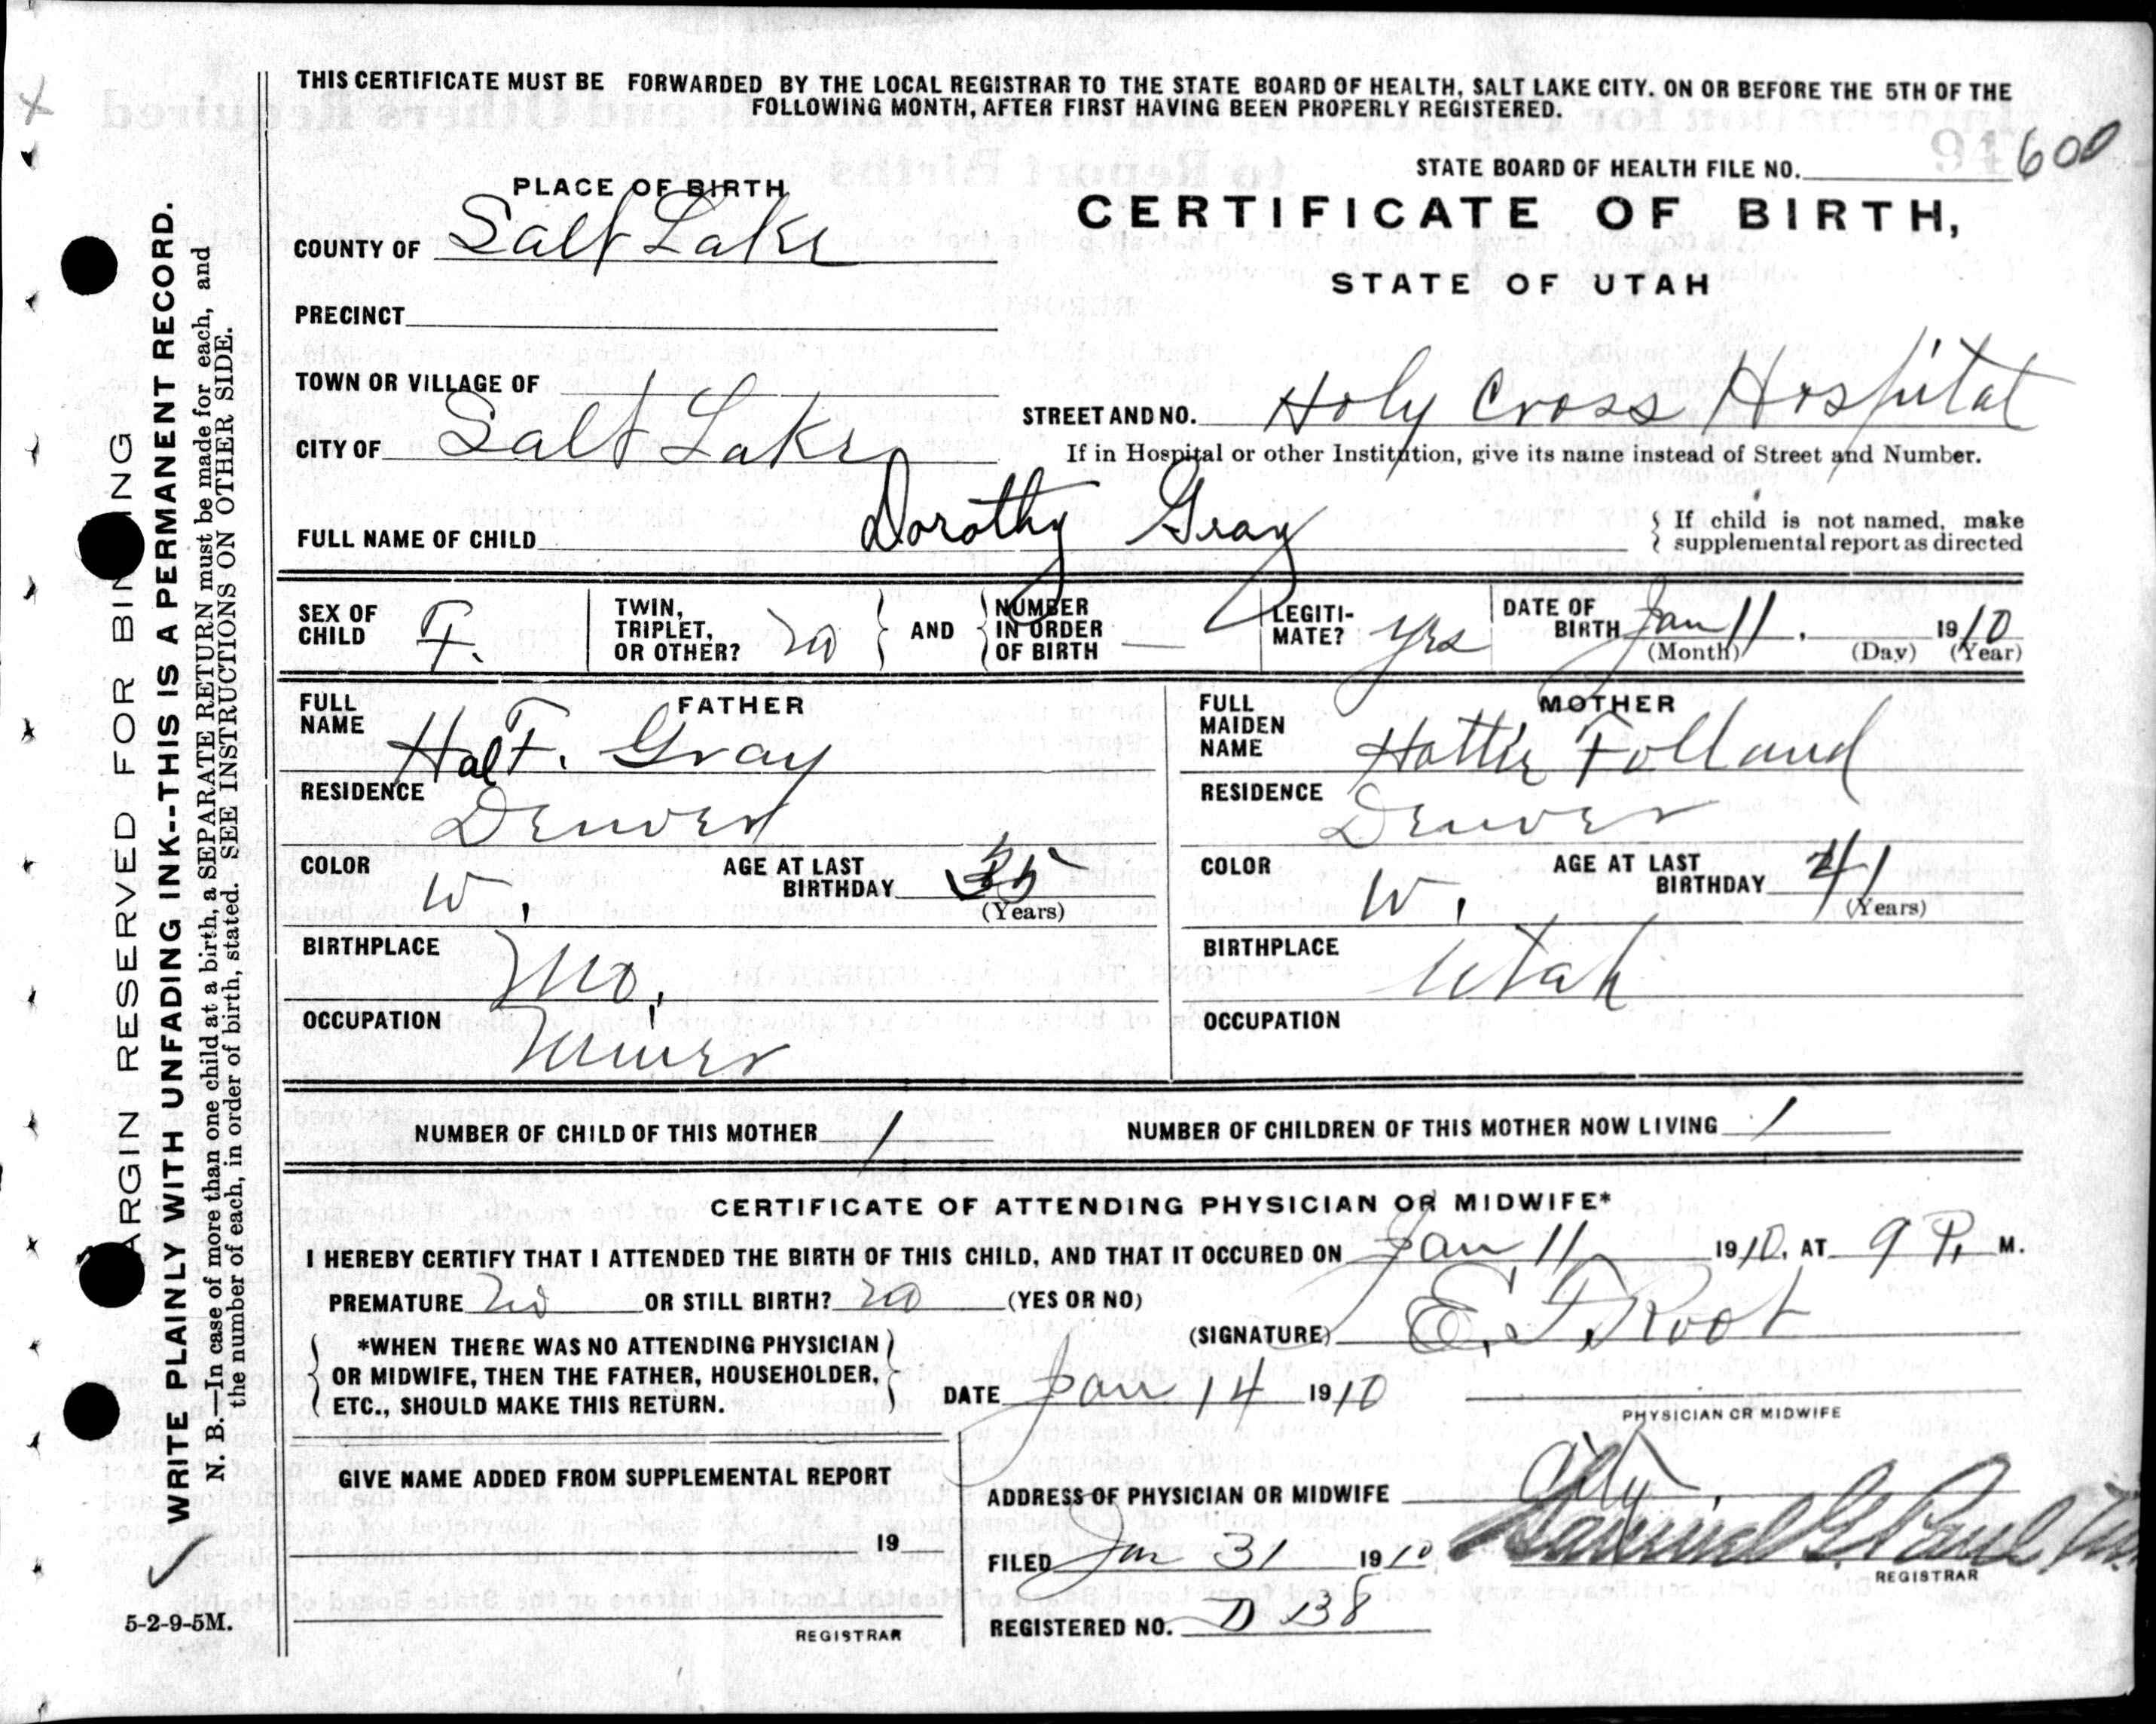 THIS CERTIFICATE MUST BE FORWARDED BY THE LOCAL REGISTRAR TO THE STATE BOARD OF HEALTH, SALT LAKE CITY. ON OR BEFORE THE 5TH OF THE
FOLLOWING MONTH, AFTER FIRST HAVING BEEN PROPERLY REGISTERED.
STATE BOARD OF HEALTH FILE NO. 94 600
PLACE OF BIRTH
CERTIFICATE OF BIRTH,
STATE OF UTAH
COUNTY OF Salt Lake
PRECINCT
TOWN OR VILLAGE OF
CITY OF Salt Lake
STREET AND NO. Holy Cross Hospital
If in Hospital or other Institution, give its name instead of Street and Number.
FULL NAME OF CHILD Dorothy Gray
If child is not named, make
supplemental report as directed
SEX OF
CHILD F.
TWIN,
TRIPLET,
OR OTHER? no
AND
NUMBER
IN ORDER
OF BIRTH —
LEGITI-
MATE? yes
DATE OF
BIRTH Jan 11, 1910
(Month) (Day) (Year)
FATHER
FULL
NAME Hal F. Gray
RESIDENCE
Denver
COLOR
W.
AGE AT LAST
BIRTHDAY 35
(Years)
BIRTHPLACE
Mo.
OCCUPATION
Miner
MOTHER
FULL
MAIDEN
NAME Hattie Folland
RESIDENCE
Denver
COLOR
W.
AGE AT LAST
BIRTHDAY
(Years)
BIRTHPLACE
Utah
OCCUPATION
NUMBER OF CHILD OF THIS MOTHER 1
NUMBER OF CHILDREN OF THIS MOTHER NOW LIVING 1
CERTIFICATE OF ATTENDING PHYSICIAN OR MIDWIFE*
I HEREBY CERTIFY THAT I ATTENDED THE BIRTH OF THIS CHILD, AND THAT IT OCCURED ON Jan 11 1910, AT 9 P. M.
PREMATURE No OR STILL BIRTH? no (YES OR NO)
(SIGNATURE) E. F. Root
*WHEN THERE WAS NO ATTENDING PHYSICIAN
OR MIDWIFE, THEN THE FATHER, HOUSEHOLDER,
ETC., SHOULD MAKE THIS RETURN.
DATE Jan 14 1910
PHYSICIAN OR MIDWIFE
GIVE NAME ADDED FROM SUPPLEMENTAL REPORT
19
REGISTRAR
ADDRESS OF PHYSICIAN OR MIDWIFE City.
FILED Jan 31 1910 Samuel G. Paul
REGISTRAR
REGISTERED NO. D 138
MARGIN RESERVED FOR BINDING
WRITE PLAINLY WITH UNFADING INK--THIS IS A PERMANENT RECORD.
N. B.—In case of more than one child at a birth, a SEPARATE RETURN must be made for each, and
the number of each, in order of birth, stated. SEE INSTRUCTIONS ON OTHER SIDE.
5-2-9-5M.